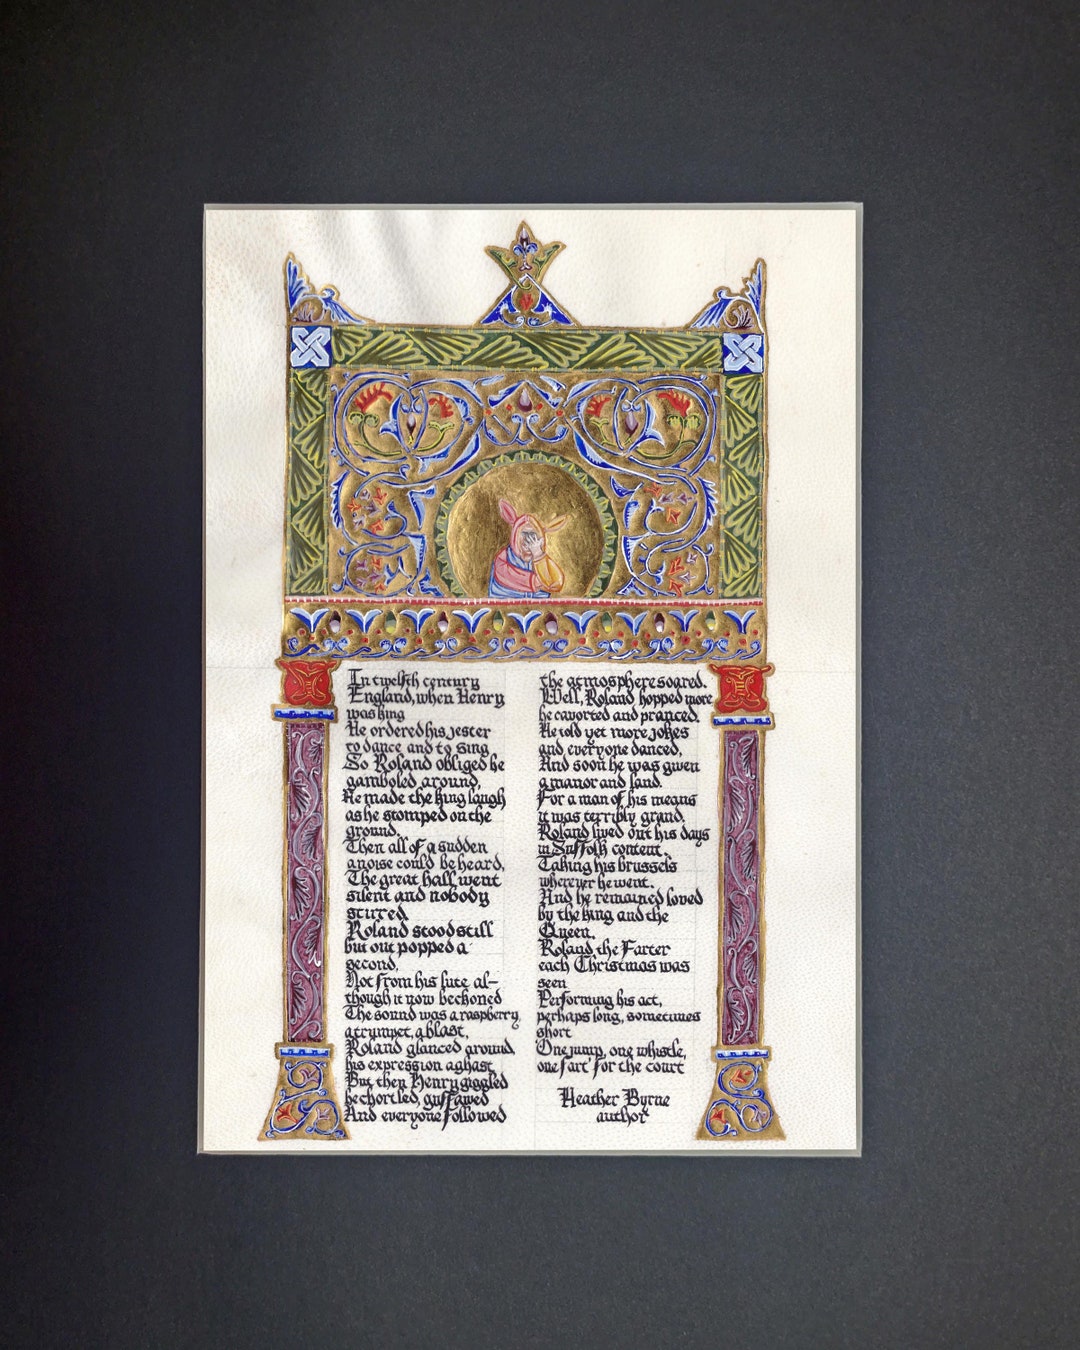 In twelfth century
England, when Henry
was king
He ordered his jester
to dance and to sing
So Roland obliged he
gamboled around,
He made the king laugh
as he stomped on the
ground.
Then all of a sudden
a noise could be heard,
The great hall went
silent and nobody
stirred
Roland stood still
but out popped a
second,
Not from his lute al-
though it now beckoned
The sound was a raspberry,
a trumpet, a blast,
Roland glanced around
his expression aghast
But then Henry giggled
he chortled, guffawed
And everyone followed
the atmosphere soared.
Well, Roland hopped more
he cavorted and pranced.
He told yet more jokes
and everyone danced,
And soon he was given
a manor and land.
For a man of his means
it was terribly grand.
Roland lived out his days
in Suffolk content.
Taking his brussels
wherever he went.
And he remained loved
by the king and the
Queen.
Roland the Farter
each Christmas was
seen
Performing his act,
perhaps long, sometimes
short
One jump, one whistle,
one fart for the court
Heather Byrne
author